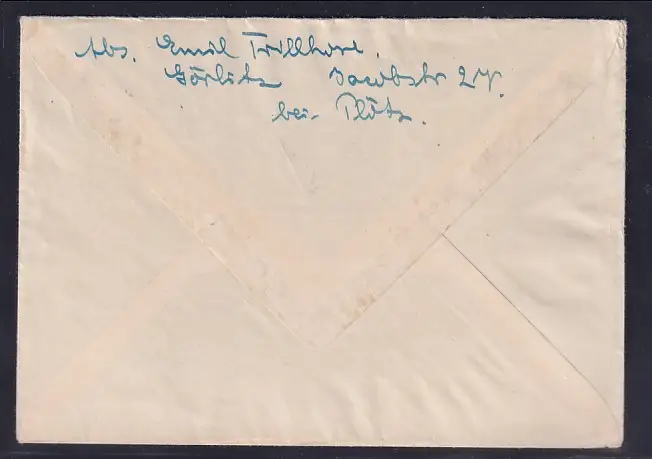 Abs. Emil Trillhose.
Görlitz Jacobstr 27.
bei Plötz.